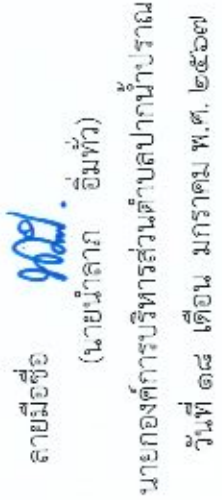 ลายมือชื่อ
(นายนำลาภ อิ่มทั่ว)
นายกองค์การบริหารส่วนตำบลปากน้ำปราณ
วันที่ ๑๘ เดือน มกราคม พ.ศ. ๒๕๖๗